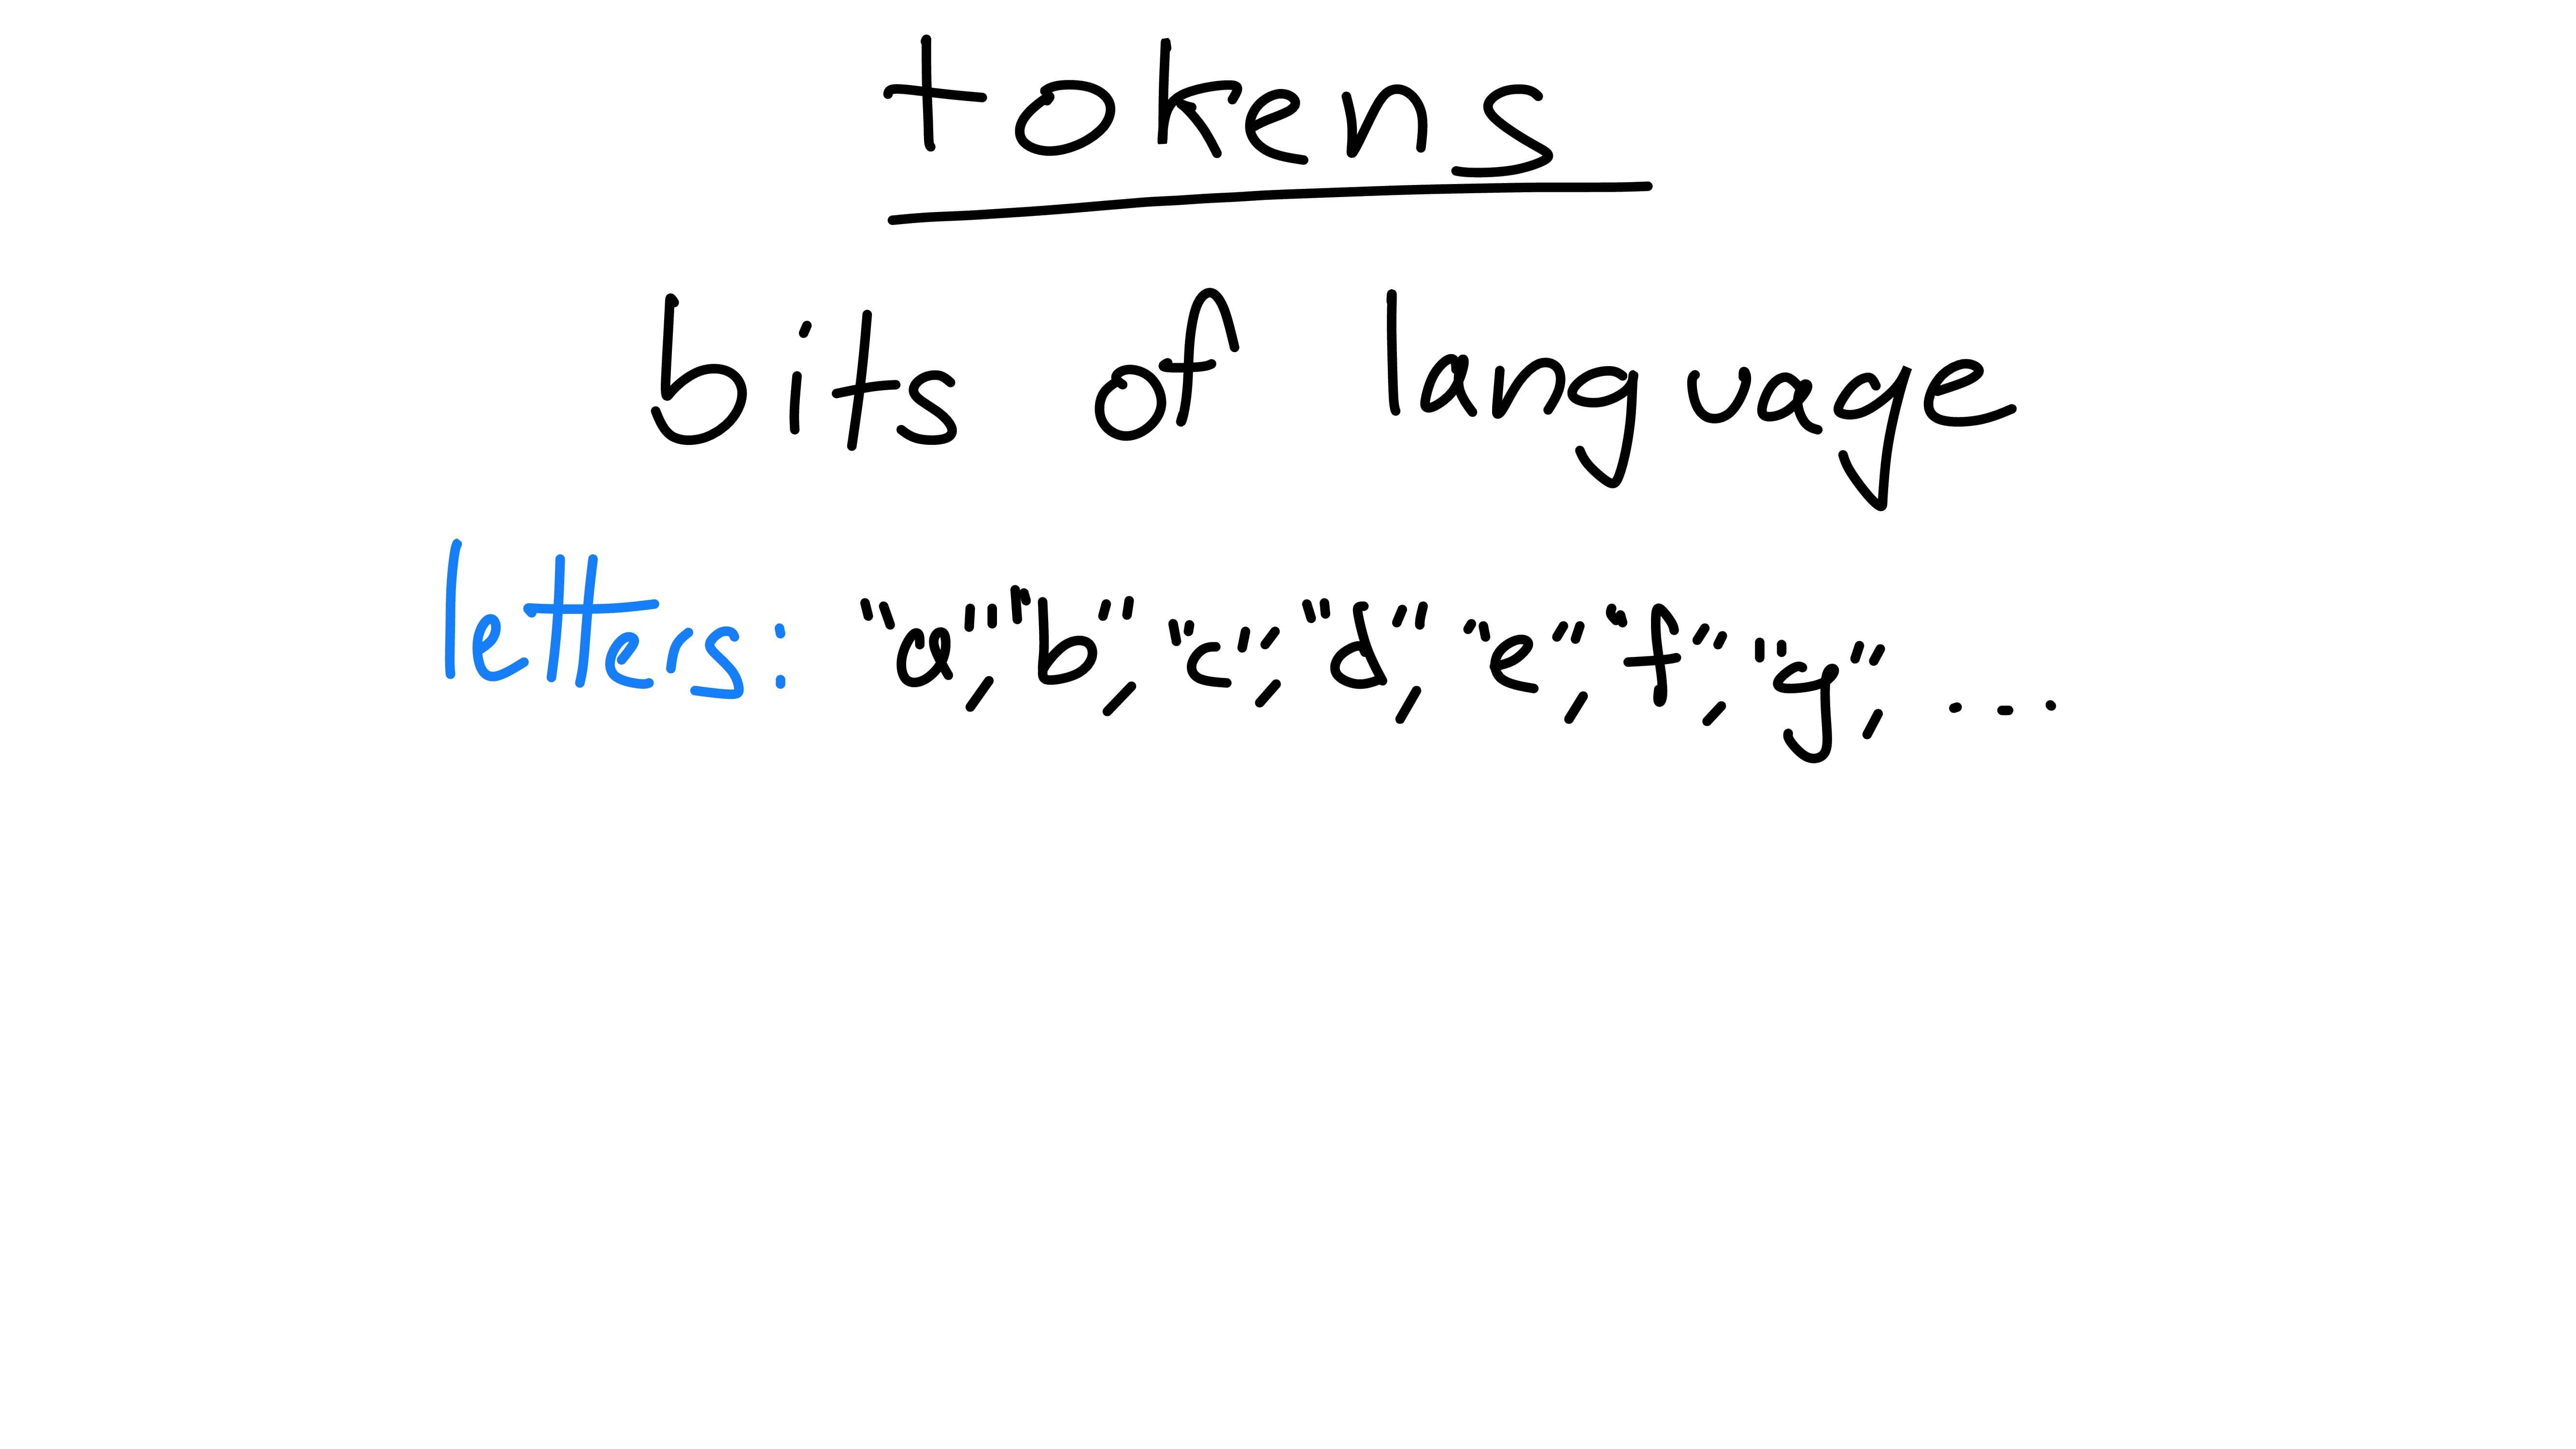 tokens
bits of language
letters: "a", "b", "c", "d", "e", "f", "g", ...